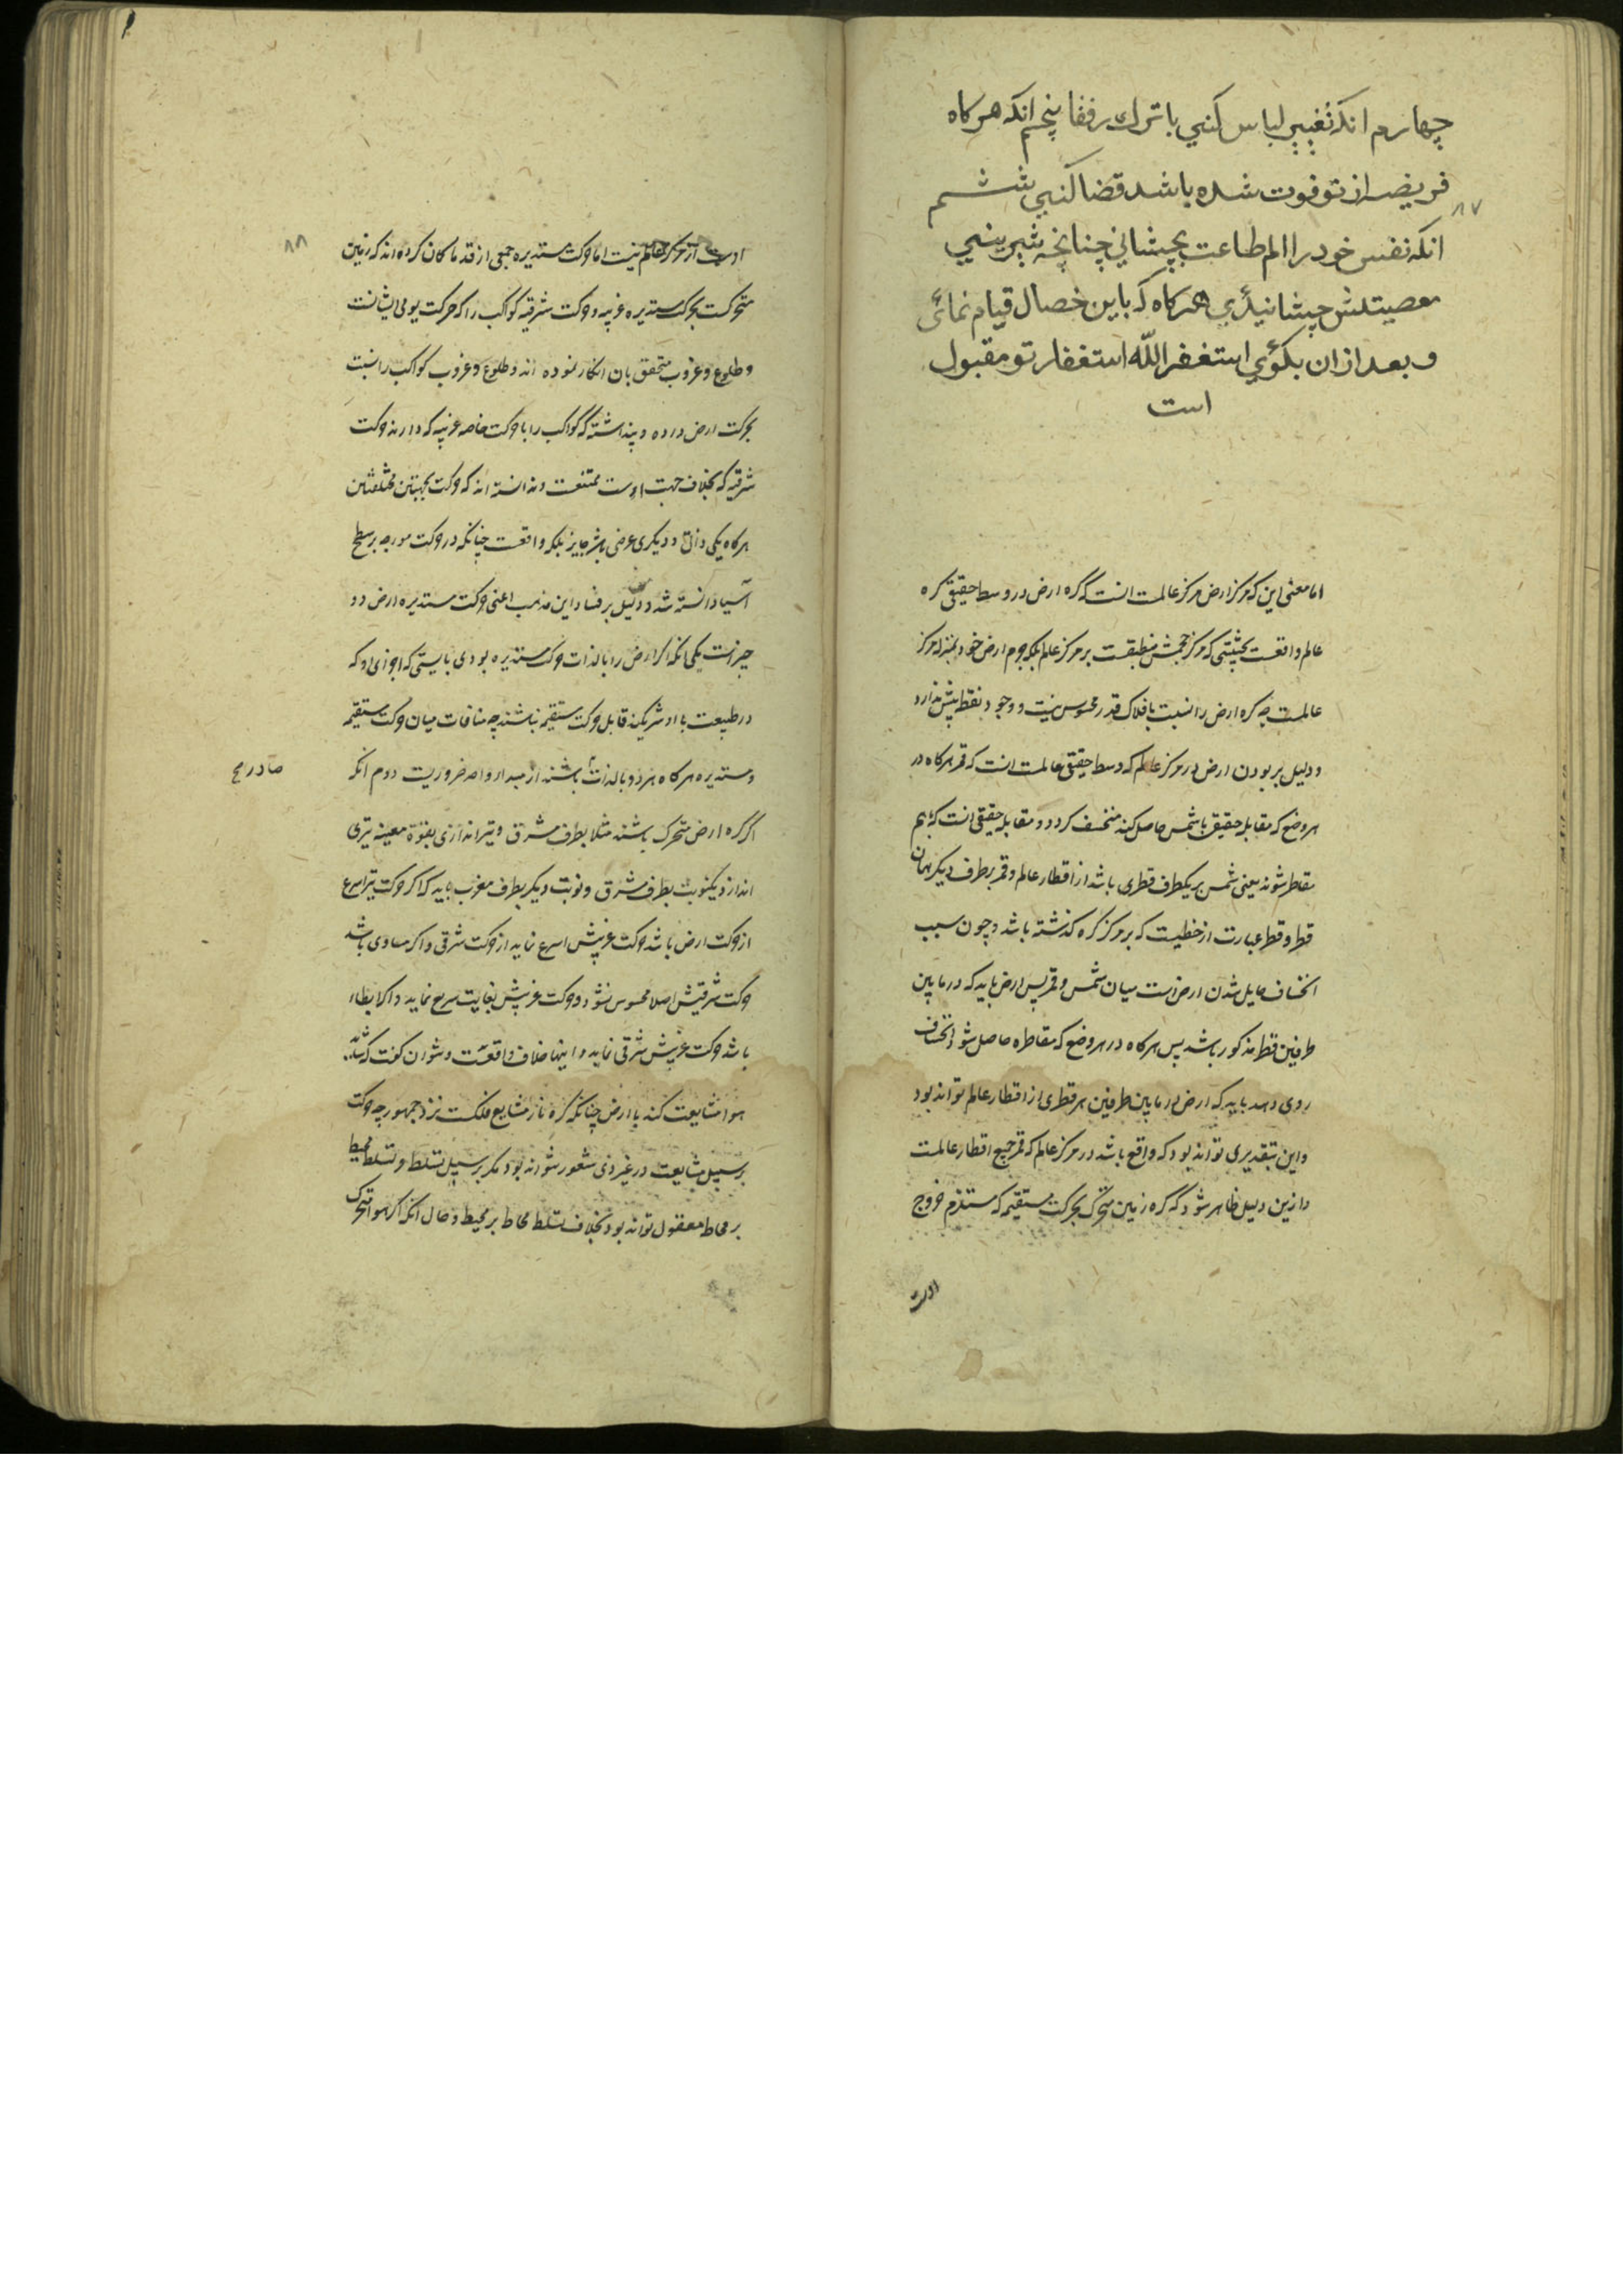 چهارم انکه تغییر لباس کنی با ترك رفقا پنجم انکه هرکاه
فریضه از تو فوت شده باشد قضا کنی ششم
۸۷
انکه نفس خود را الم طاعت بچشانی چنانچه شیرینی
معصیتش چشانیدی هرکاه که باین خصال قیام نمائی
و بعد ازان بکوئی استغفر الله استغفار تو مقبول
است
اما معنی این که مرکز ارض مرکز عالمست انست که کره ارض در وسط حقیقی کره
عالم واقعست بحیثیتی که مرکز حجمش منطبقست بر مرکز عالم بلکه جرم ارض خود بمنزله مرکز
عالمست چه کره ارض را نسبت بافلاک قدر محسوس نیست و وجود نقطه بیش ندارد
و دلیل بر بودن ارض در مرکز عالم که وسط حقیقی عالمست انست که قمر هرکاه در
هر وضع که مقابله حقیقی با شمس حاصل کند منخسف کردد و مقابله حقیقی انست که بهم
مقاطر شوند یعنی شمس بر یکطرف قطری باشد از اقطار عالم و قمر بر طرف دیکر همان
قطر و قطر عبارت از خطیست که بر مرکز کره کذشته باشد و چون سبب
انخساف حایل شدن ارض است میان شمس و قمر پس ارض باید که در مابین
طرفین قطر مذکور باشد پس هرکاه در هر وضع که مقاطره حاصل شود انخساف
روی دهد باید که ارض در مابین طرفین هر قطری از اقطار عالم تواند بود
و این بتقدیری تواند بود که واقع باشد در مرکز عالم که ممر جمیع اقطار عالمست
و ازین دلیل ظاهر شود که کره زمین متحرک بحرکت مستقیمه که مستلزم خروج
اوست
۸۸
اوست از مرکز عالم نیست اما حرکت مستدیره جمعی از قدما کمان کرده اند که زمین
متحرکست بحرکت مستدیره غربیه و حرکت شرقیه کواکب را که حرکت یومی ایشانست
و طلوع و غروب متحقق بان انکار نموده اند و طلوع و غروب کواکب را نسبت
بحرکت ارض داده و پنداشته که کواکب را با حرکت خاصه غربیه که دارند حرکت
شرقیه که بخلاف جهت اوست ممتنعست و ندانسته اند که حرکت بجهتین مختلفتین
هرکاه یکی ذاتی و دیکری عرضی باشد جایز بلکه واقعست چنانکه در حرکت مورچه بر سطح
آسیا دانسته شد و دلیل بر فساد این مذهب اعنی حرکت مستدیره ارض دو
چیزست یکی انکه اکر ارض را بالذات حرکت مستدیره بودی بایستی که اجزای او که
در طبیعت با او شریکند قابل حرکت مستقیم نباشند چه منافات میان حرکت مستقیمه
و مستدیره هرکاه هر دو بالذات باشند از مبدا واحد ضروریست دوم انکه
صادر صح
اکر کره ارض متحرک باشد مثلا بطرف مشرق و تیراندازی بقوة معینه تیری
اندازد یکنوبت بطرف مشرق و نوبت دیکر بطرف مغرب باید که اکر حرکت تیر اسرع
از حرکت ارض باشد حرکت غربیش اسرع نماید از حرکت شرقی و اکر مساوی باشد
حرکت شرقیش اصلا محسوس نشود و حرکت غربیش بغایت سریع نماید و اکر ابطاء
باشد حرکت غربیش شرقی نماید و اینها خلاف واقعست و نتوان کفت که شاید
هوا مشایعت کند با ارض چنانکه کره نار مشایع فلکست نزد جمهور چه حرکت
بر سبیل مشایعت در غیر ذی شعور نتواند بود مکر بر سبیل تسلط و تسلط محیط
بر محاط معقول تواند بود بخلاف تسلط محاط بر محیط و حال انکه اکر هوا متحرک